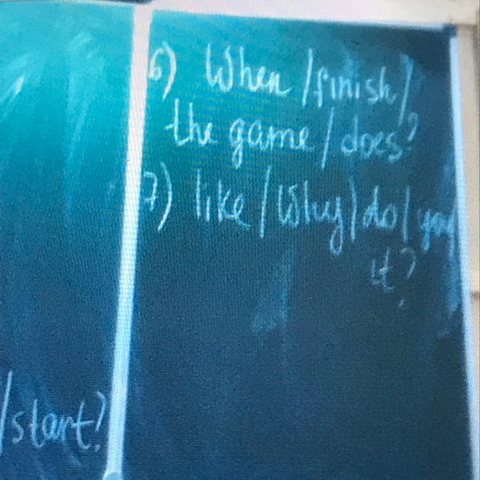 6) When /finish/
the game / does?
7) like / Why / do / you
it?
/start?